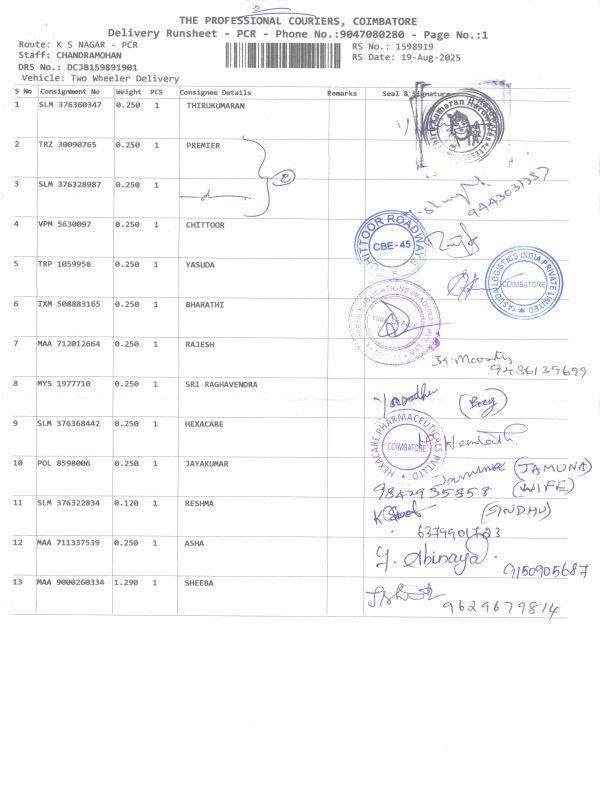 2
THE PROFESSIONAL COURIERS, COIMBATORE
Delivery Runsheet - PCR - Phone No.:9047080280 - Page No.:1
Route: K S NAGAR - PCR
RS No.: 1598919
Staff: CHANDRAMOHAN
RS Date: 19-Aug-2025
DRS No.: DCJB159891901
Vehicle: Two Wheeler Delivery
S No Consignment No Weight PCS Consignee Details Remarks Seal & Signature
1 SLM 376360347 0.250 1 THIRUKUMARAN
2 TRZ 30090765 0.250 1 PREMIER
2
3 SLM 376328987 0.250 1
9443031257
4 VPM 5630097 0.250 1 CHITTOOR
CHITTOOR ROADWAYS
CBE-45
5 TRP 1059958 0.250 1 YASUDA
YASUDA LOGISTICS INDIA PRIVATE LIMITED
COIMBATORE
6 IXM 508883165 0.250 1 BHARATHI
7 MAA 712012664 0.250 1 RAJESH
9486139699
8 MYS 1977710 0.250 1 SRI RAGHAVENDRA
9 SLM 376368442 0.250 1 HEXACARE
HEXACARE PHARMACEUTICALS PVT.LTD.
COIMBATORE
Hemlath
10 POL 8598006 0.250 1 JAYAKUMAR
Jamuna (JAMUNA)
9842935858 (WIFE)
11 SLM 376322834 0.120 1 RESHMA
(SINDHU)
6379901723
12 MAA 711337539 0.250 1 ASHA
Y. Abinaya.
9150905687
13 MAA 9000260334 1.290 1 SHEEBA
9629679814